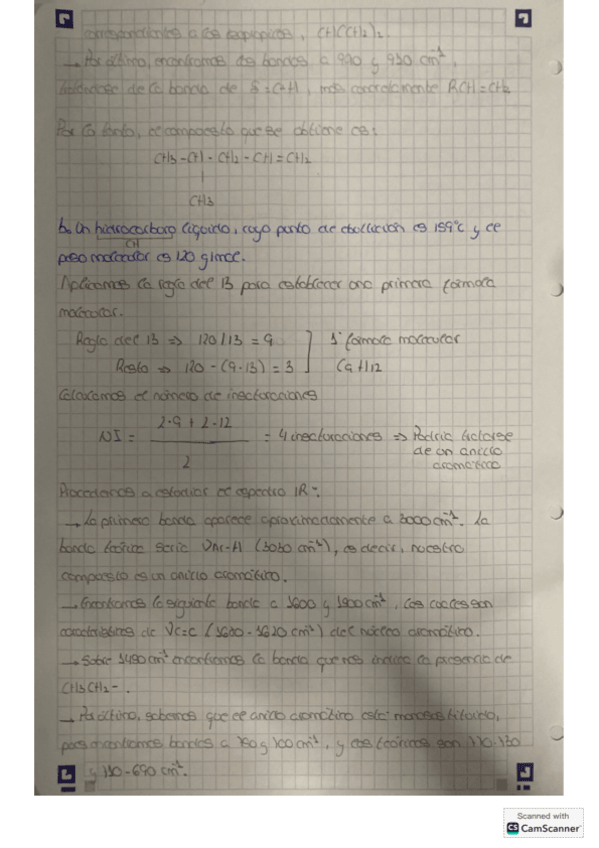 correspondientes a los isopropilos, CH(CH3)2.
→ Por último, encontramos dos bandas a 990 y 930 cm-1,
de la banda de δ=C-H, más concretamente RCH=CH2
Por lo tanto, el compuesto que se obtiene es:
CH3-CH-CH2-CH=CH2
|
CH3
b. Un hidrocarburo líquido, cuyo punto de ebullición es 159°C y el
CH
peso molecular es 120 g/mol.
Aplicamos la regla del 13 para establecer una primera fórmula
molecular.
Regla del 13 ⇒ 120/13 = 9
Resto ⇒ 120-(9·13) = 3
1ª fórmula molecular
C9H12
Calculamos el número de insaturaciones
NI = 2·9+2-12 / 2 = 4 insaturaciones ⇒ Podría tratarse
de un anillo
aromático
Procedemos a estudiar el espectro IR:
→ La primera banda aparece aproximadamente a 3000 cm-1. La
banda teórica sería νAr-H (3030 cm-1), es decir, nuestro
compuesto es un anillo aromático.
→ Encontramos la siguiente banda a 1600 y 1500 cm-1, las cuales son
características de νC=C del núcleo aromático.
→ Sobre 1450 cm-1 encontramos la banda que nos indica la presencia de
CH3CH2-.
→ Por último, sabemos que el anillo aromático está monosustituido,
pues encontramos bandas a 750 y 700 cm-1, y las teóricas son 770-730
y 710-690 cm-1.
Scanned with
CS CamScanner